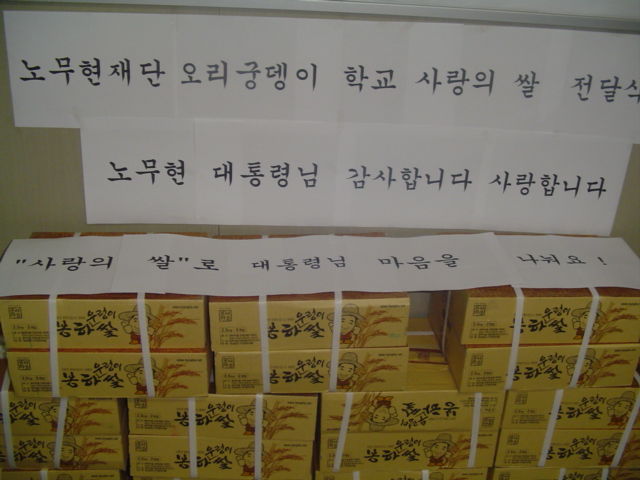 노무현재단 오리궁뎅이 학교 사랑의 쌀 전달식
노무현 대통령님 감사합니다 사랑합니다
"사랑의 쌀"로 대통령님 마음을 나눠요!
우렁이
봉하쌀
우렁이
봉하쌀
우렁이
봉하쌀
우렁이
봉하쌀
우렁이
봉하쌀
우렁이
봉하쌀
우렁이
봉하쌀
우렁이
봉하쌀
우렁이
봉하쌀
우렁이
봉하쌀
우렁이
봉하쌀
우렁이
봉하쌀